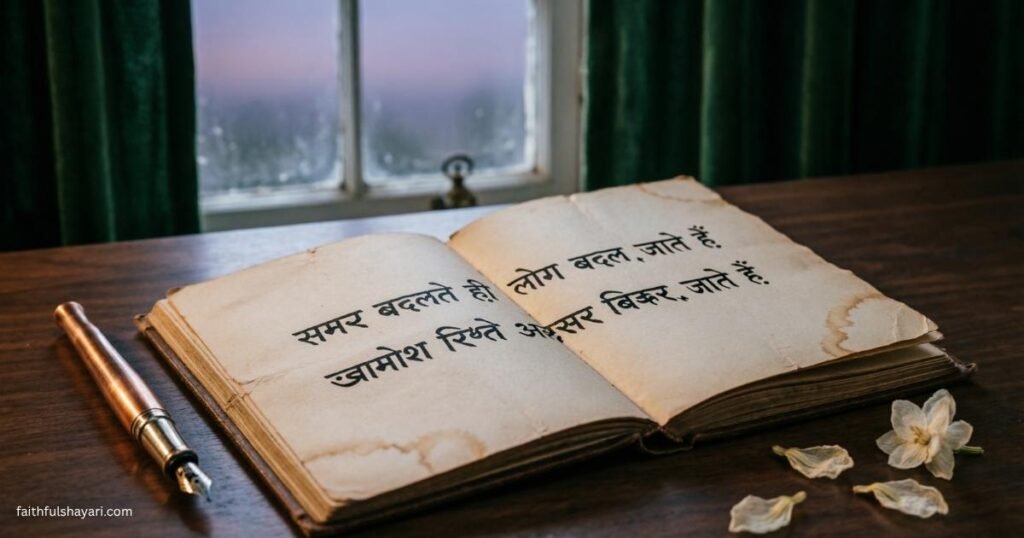 समर बदलते ही, लोग बदल, जाते हैं.
ख़ामोश रिय्ते अक्सर बिकर, जाते हैं.
faithfulshayari.com